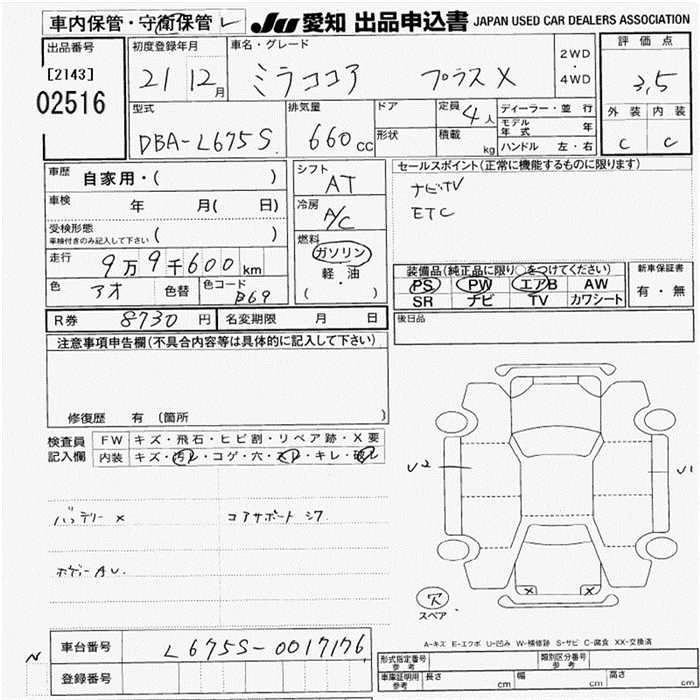 車内保管・守衛保管 レ
JU 愛知 出品申込書 JAPAN USED CAR DEALERS ASSOCIATION
出品番号
[2143]
02516
初度登録年月
21 12月
車名・グレード
ミラココア プラスX
2WD
・
4WD
評価点
3,5
外装 内装
C C
型式
DBA-L675S
排気量
660cc
ドア
形状
定員 4人
積載 kg
ディーラー・並行
モデル年式 年
ハンドル 左・右
車歴
自家用・( )
車検 年 月( 日)
受検形態
車検付きのみ記入して下さい ( )
走行 9万9千600km
色 アオ 色替 色コード B69
シフト
AT
冷房
A/C
燃料
ガソリン
軽・油
( )
セールスポイント(正常に機能するものに限ります)
ナビTV
ETC
装備品(純正品に限り○をつけてください)
PS PW エアB AW
SR ナビ TV カワシート
新車保証書
有・無
R券 8730円 名変期限 月 日
後日品
注意事項申告欄(不具合内容等は具体的に記入して下さい)
修復歴 有 (箇所 )
検査員
記入欄
FW キズ・飛石・ヒビ割・リペア跡・X要
内装 キズ・汚レ・コゲ・穴・スレ・キレ・破レ
バッテリー×
コアサポートシワ
ボディーAU.
U2
U1
X X
穴
スペア
A-キズ E-エクボ U-凹み W-補修跡 S-サビ C-腐食 XX-交換済
N
車台番号 L675S-0017176
登録番号
形式指定番号
参考
類別区分番号
参考
車庫証明用
参考
長さ cm 幅 cm 高さ cm